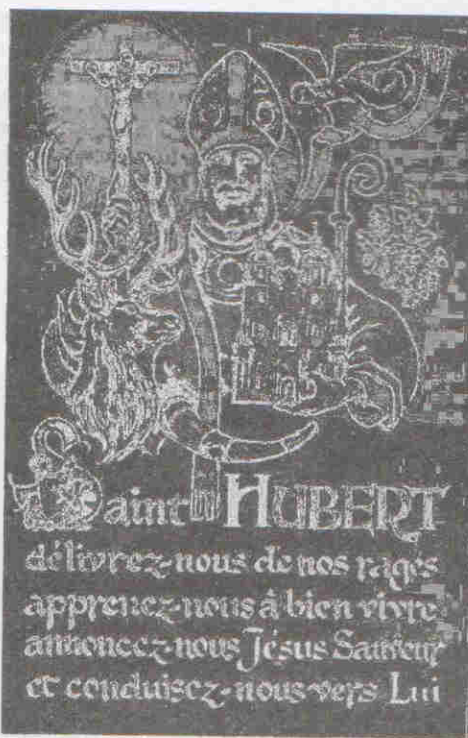 Saint HUBERT
délivrez-nous de nos rages
apprenez-nous à bien vivre
annoncez-nous Jésus Sauveur
et conduisez-nous vers Lui